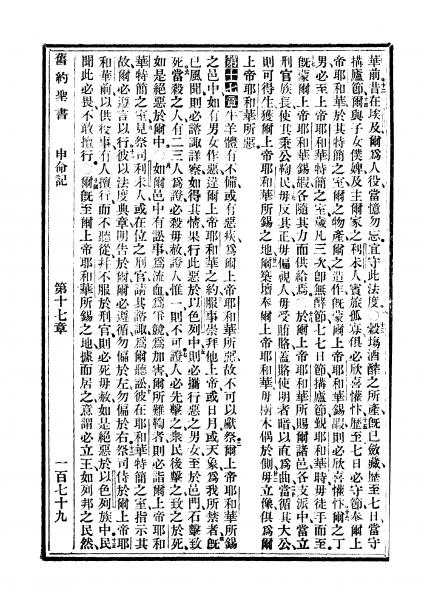 華前昔在埃及爾爲人役當憶勿忘宜守此法度○穀塲酒醡之所產旣已斂藏歷至七日當守
搆廬節爾與子女僕婢及主爾家之利未人賓旅孤寡俱必欣喜懽忭歷至七日必守節奉爾上
帝耶和華於其特簡之室爾之物產爾之造作旣蒙爾上帝耶和華錫嘏則必欣喜懽忭爾之丁
男必至上帝耶和華特簡之室歲凡三次卽無酵節七七日節搆廬節覲耶和華時毋徒手而至
旣蒙爾上帝耶和華錫嘏各隨其力而供給焉○於爾上帝耶和華所賜爾諸邑各支派中當立
刑官族長使其秉公鞫民毋反其正毋偏視人毋受賄賂蓋賂使明者暗以直爲曲當循其大公
則可得生獲爾上帝耶和華所錫之地爾築壇奉爾上帝耶和華毋樹木偶於側毋立像俱爲爾
上帝耶和華所惡
第十七章 牛羊體有不備或有惡疾爲爾上帝耶和華所惡故不可以獻祭爾上帝耶和華所錫
之邑中如有男女作惡違爾上帝耶和華之約服事崇拜他上帝或日月或天象爲我所禁者旣
已風聞則必諮諏詳察如得其情果行此惡於以色列中則必攜行惡之男女至於邑門石擊致
死當殺之人有二三人爲證必殺毋赦證人惟一則不可證人必先擊之衆民後擊之致之於死
如是絕惡於爾中○如爾邑中有訟事爲流血爲爭競爲加害爾所難鞫者則必詣爾上帝耶和
華特簡之室見祭司利未人或在位之刑官請其諮諏爲爾聽訟彼在耶和華特簡之室指示其
故爾必遵言以行彼以法度典章明告於爾爾必遵循勿偏於左勿偏於右祭司侍於爾上帝耶
和華前以供役事有人擅行而不聽從拜不服於刑官則必死毋赦如是絕惡於以色列族中民
聞此必畏不敢擅行○爾旣至爾上帝耶和華所錫之地據而居之意謂必立王如列邦之民然
舊約聖書 申命記 第十七章 一百七十九